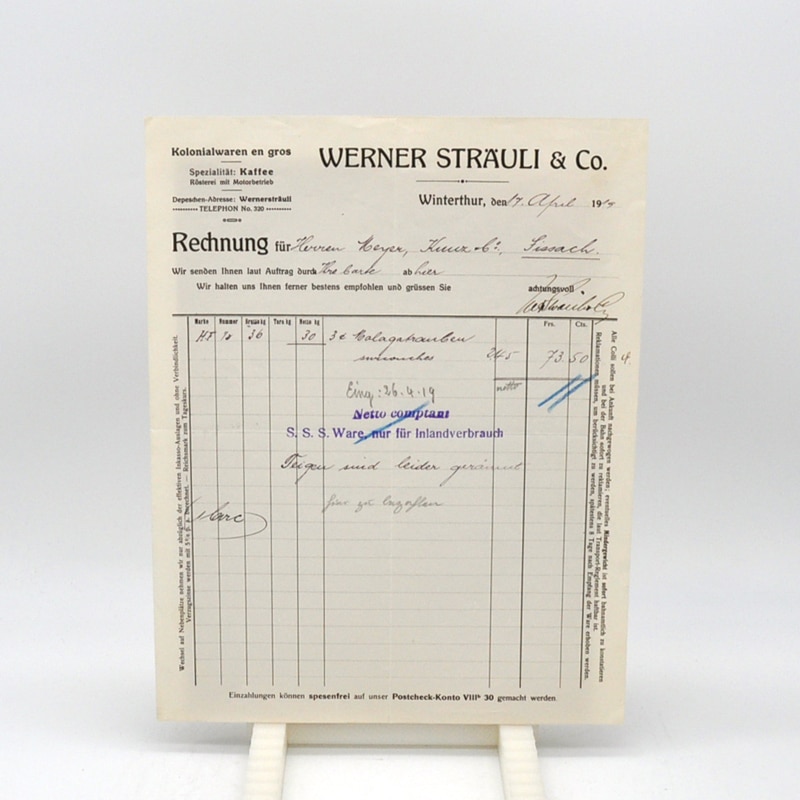 Kolonialwaren en gros
Spezialität: Kaffee
Rösterei mit Motorbetrieb
Depeschen-Adresse: Wernersträuli
TELEPHON No. 320
WERNER STRÄULI & Co.
Winterthur, den 17. April 1919
Rechnung für Herren Meyer, Kunz & Co., Sissach.
Wir senden Ihnen laut Auftrag durch Ihre Karte ab hier
Wir halten uns Ihnen ferner bestens empfohlen und grüssen Sie achtungsvoll
Marke Nummer Brutto kg Tara kg Netto kg Frs. Cts.
36 30 Malagatrauben
245 73.50
netto
Eing: 26.4.19
Netto comptant
S. S. S. Ware, nur für Inlandverbrauch
Feigen sind leider geräumt
Wechsel auf Nebenplätze nehmen wir nur abzüglich der effektiven Inkasso-Auslagen und ohne Verbindlichkeit.
Verzugszinse werden mit 5% p. a. berechnet. — Reichsmark zum Tageskurs.
Alle Colli sollen bei Ankunft nachgewogen werden; eventuelles Mindergewicht ist sofort bahnamtlich zu konstatieren
und bei der Bahn sofort zu reklamieren, die laut Transport-Reglement haftbar ist.
Reklamationen müssen, um berücksichtigt zu werden, spätestens 8 Tage nach Empfang der Ware erhoben werden.
Einzahlungen können spesenfrei auf unser Postcheck-Konto VIIIb 30 gemacht werden.